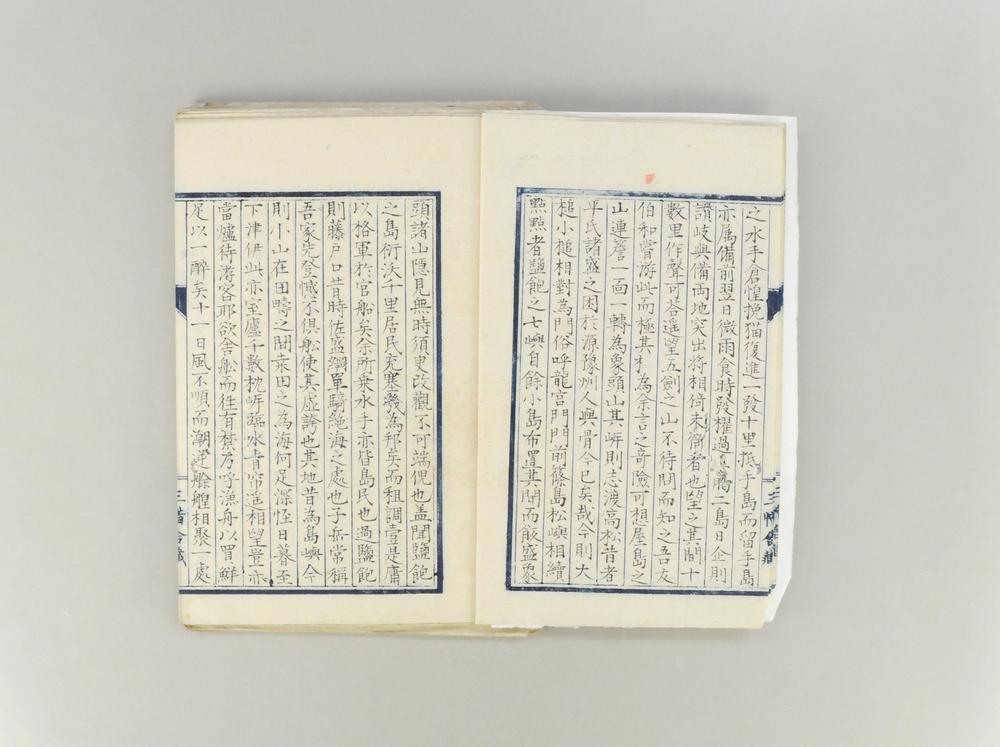 之水手倉惶挽猫復進一發十里抵手島而留手島
亦属備前翌日微雨食時發櫂過二島日企則
讃岐與備両地突出将相倚未衝者也望之其間十
數里作聲可答遥望五劍之山不待問而知之吾友
伯和嘗游此而極其打為余言之奇險可想屋島之
山連簷一面一轉為象頭山其岍則志渡高松昔者
平氏諸盛之困於源豫州人與骨今已矣哉今則大
槌小槌相對為門俗呼龍宮門門前篠島松嶼相續
點點者鹽飽之七嶼自餘小島布置其間而飯盛象
頭諸山隠見無時須臾改觀不可端倪也盖聞鹽飽
之島衍沃千里居民充塞幾為邦矣而租調壹是庸
以格軍於官船矣余所乗水手亦皆島民也過鹽飽
則藤戸口昔時佐盛綱單騎絶海之處也子岳常稱
吾家先登憾不俱舩使其虚誇也其地昔為島嶼今
則小山在田疇之間桒田之為海何足深怪日暮至
下津伊此亦室廬千數枕岍臨水青帘遥相望豈亦
當爐待游客耶欲舎舩而徃有禁乃呼漁舟以買鮮
足以一醉矣十一日風不順而潮逆艅艎相聚一處
三惜舎蔵